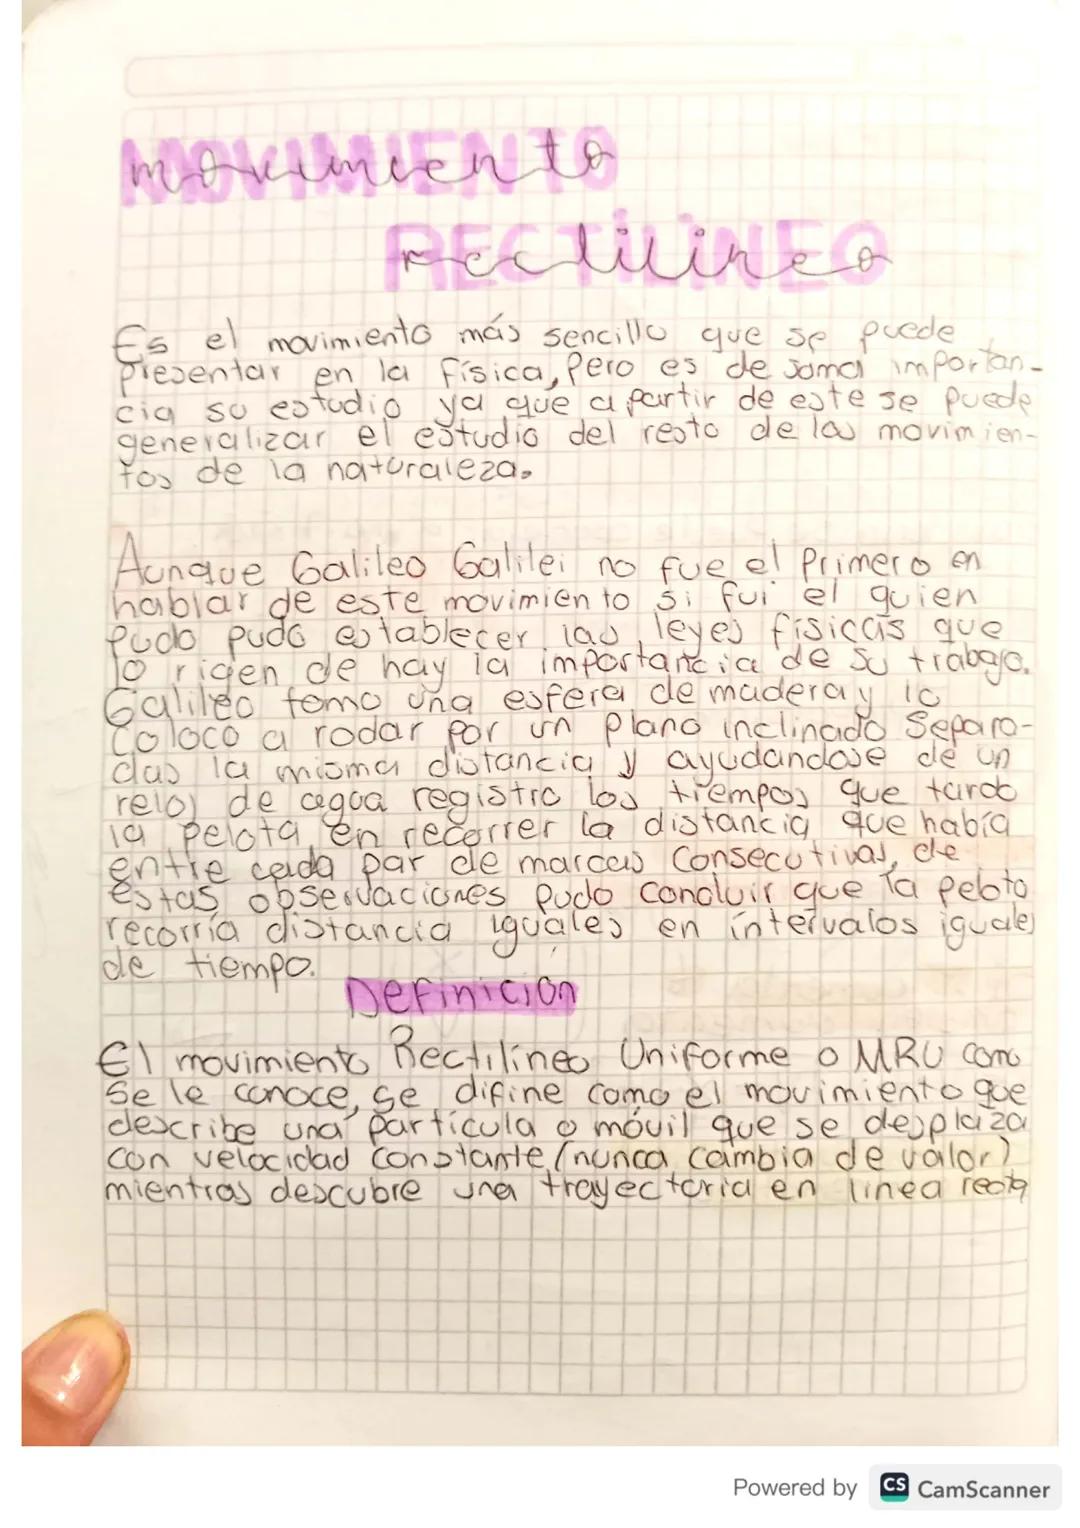 MOVIMIENTO
movimiento
RECTILINEO
rectilineo
Es el movimiento más sencillo que se puede
presentar en la física, Pero es de suma importan-
cia su estudio ya que a partir de este se puede
generalizar el estudio del resto de los movimien-
tos de la naturaleza.
Aunque Galileo Galilei no fue el Primero en
hablar de este movimiento si fui el quien
pudo pudo establecer las leyes físicas que
lo rigen de hay la importancia de su trabajo.
Galileo tomo una esfera de madera y lo
coloco a rodar por un plano inclinado Separa-
das la misma distancia y ayudandose de un
reloj de agua registro los tiempos que tardo
la pelota en recorrer la distancia que había
entre cada par de marcas consecutivas, de
estas observaciones pudo concluir que la pelota
recorría distancia iguales en intervalos iguales
de tiempo.
Definición
El movimiento Rectilíneo Uniforme o MRU como
Se le conoce, se difine como el movimiento que
describe una partícula o móvil que se desplaza
con velocidad constante (nunca cambia de valor)
mientras descubre una trayectoria en linea recta
Powered by CS CamScanner